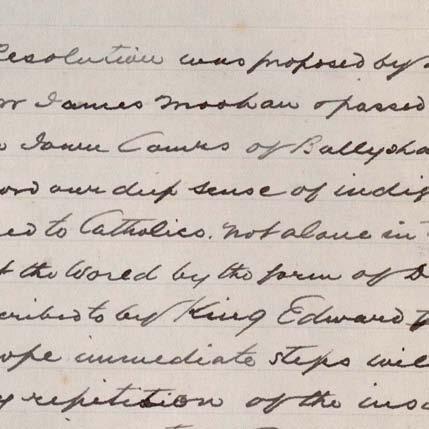 Resolution was proposed by
James Moohan & passed
Town Comrs of Ballysha
our deep sense of indig
to Catholics. not alone in
the World by the form of D
cribed to by King Edward
ope immediate steps will
repitition of the ins